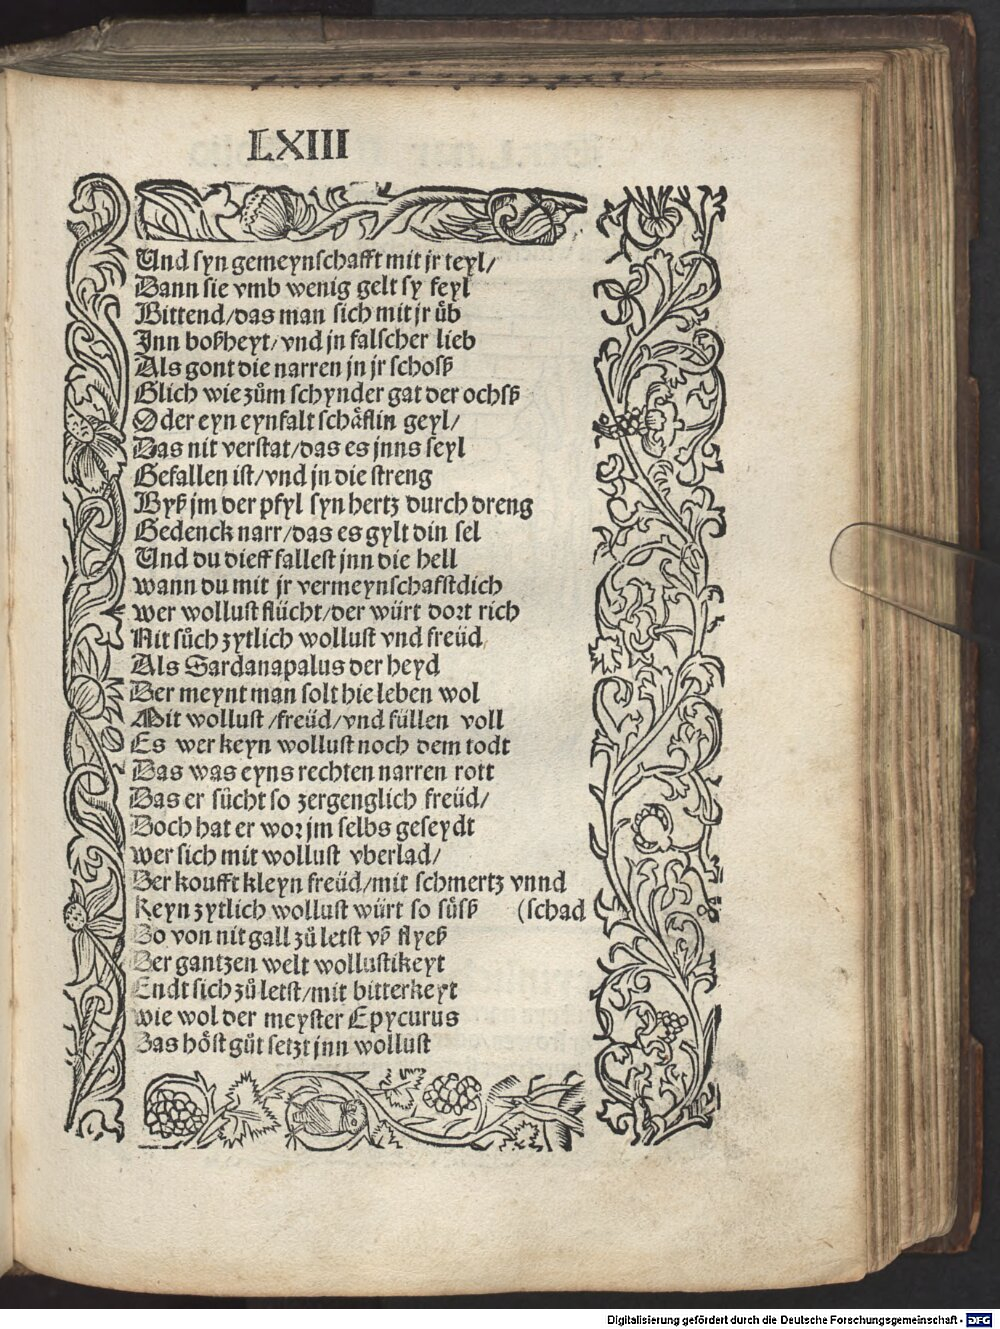 LXIII
Und syn gemeynschafft mit jr teyl/
Dann sie vmb wenig gelt sy feyl
Bittend/das man sich mit jr uͤb
Jnn boßheyt/vnd jn falscher lieb
Als gont die narren jn jr schosß
Glich wie zuͦm schynder gat der ochsß
Oder eyn eynfalt schaͤflin geyl/
Das nit verstat/das es jnns seyl
Gefallen ist/vnd jn die streng
Byß jm der pfyl syn hertz durch dreng
Gedenck narr/das es gylt din sel
Und du dieff fallest jnn die hell
wann du mit jr vermeynschafstdich
wer wollust fluͤcht/der würt dort rich
Nit suͦch zytlich wollust vnd freüd
Als Sardanapalus der heyd
Der meynt man solt hie leben wol
Mit wollust /freüd/vnd füllen voll
Es wer keyn wollust noch dem todt
Das was eyns rechten narren rott
Das er suͦcht so zergenglich freüd/
Doch hat er wor jm selbs geseydt
wer sich mit wollust vberlad/
Der koufft kleyn freüd/mit schmertz vnnd
Keyn zytlich wollust würt so suͤsß (schad
So von nit gall zuͦ letst vß flyeß
Der gantzen welt wollustikeyt
Endt sich zuͦ letst/mit bitterkeyt
wie wol der meyster Epycurus
Das hoͤst guͦt setzt jnn wollust
Digitalisierung gefördert durch die Deutsche Forschungsgemeinschaft - DFG